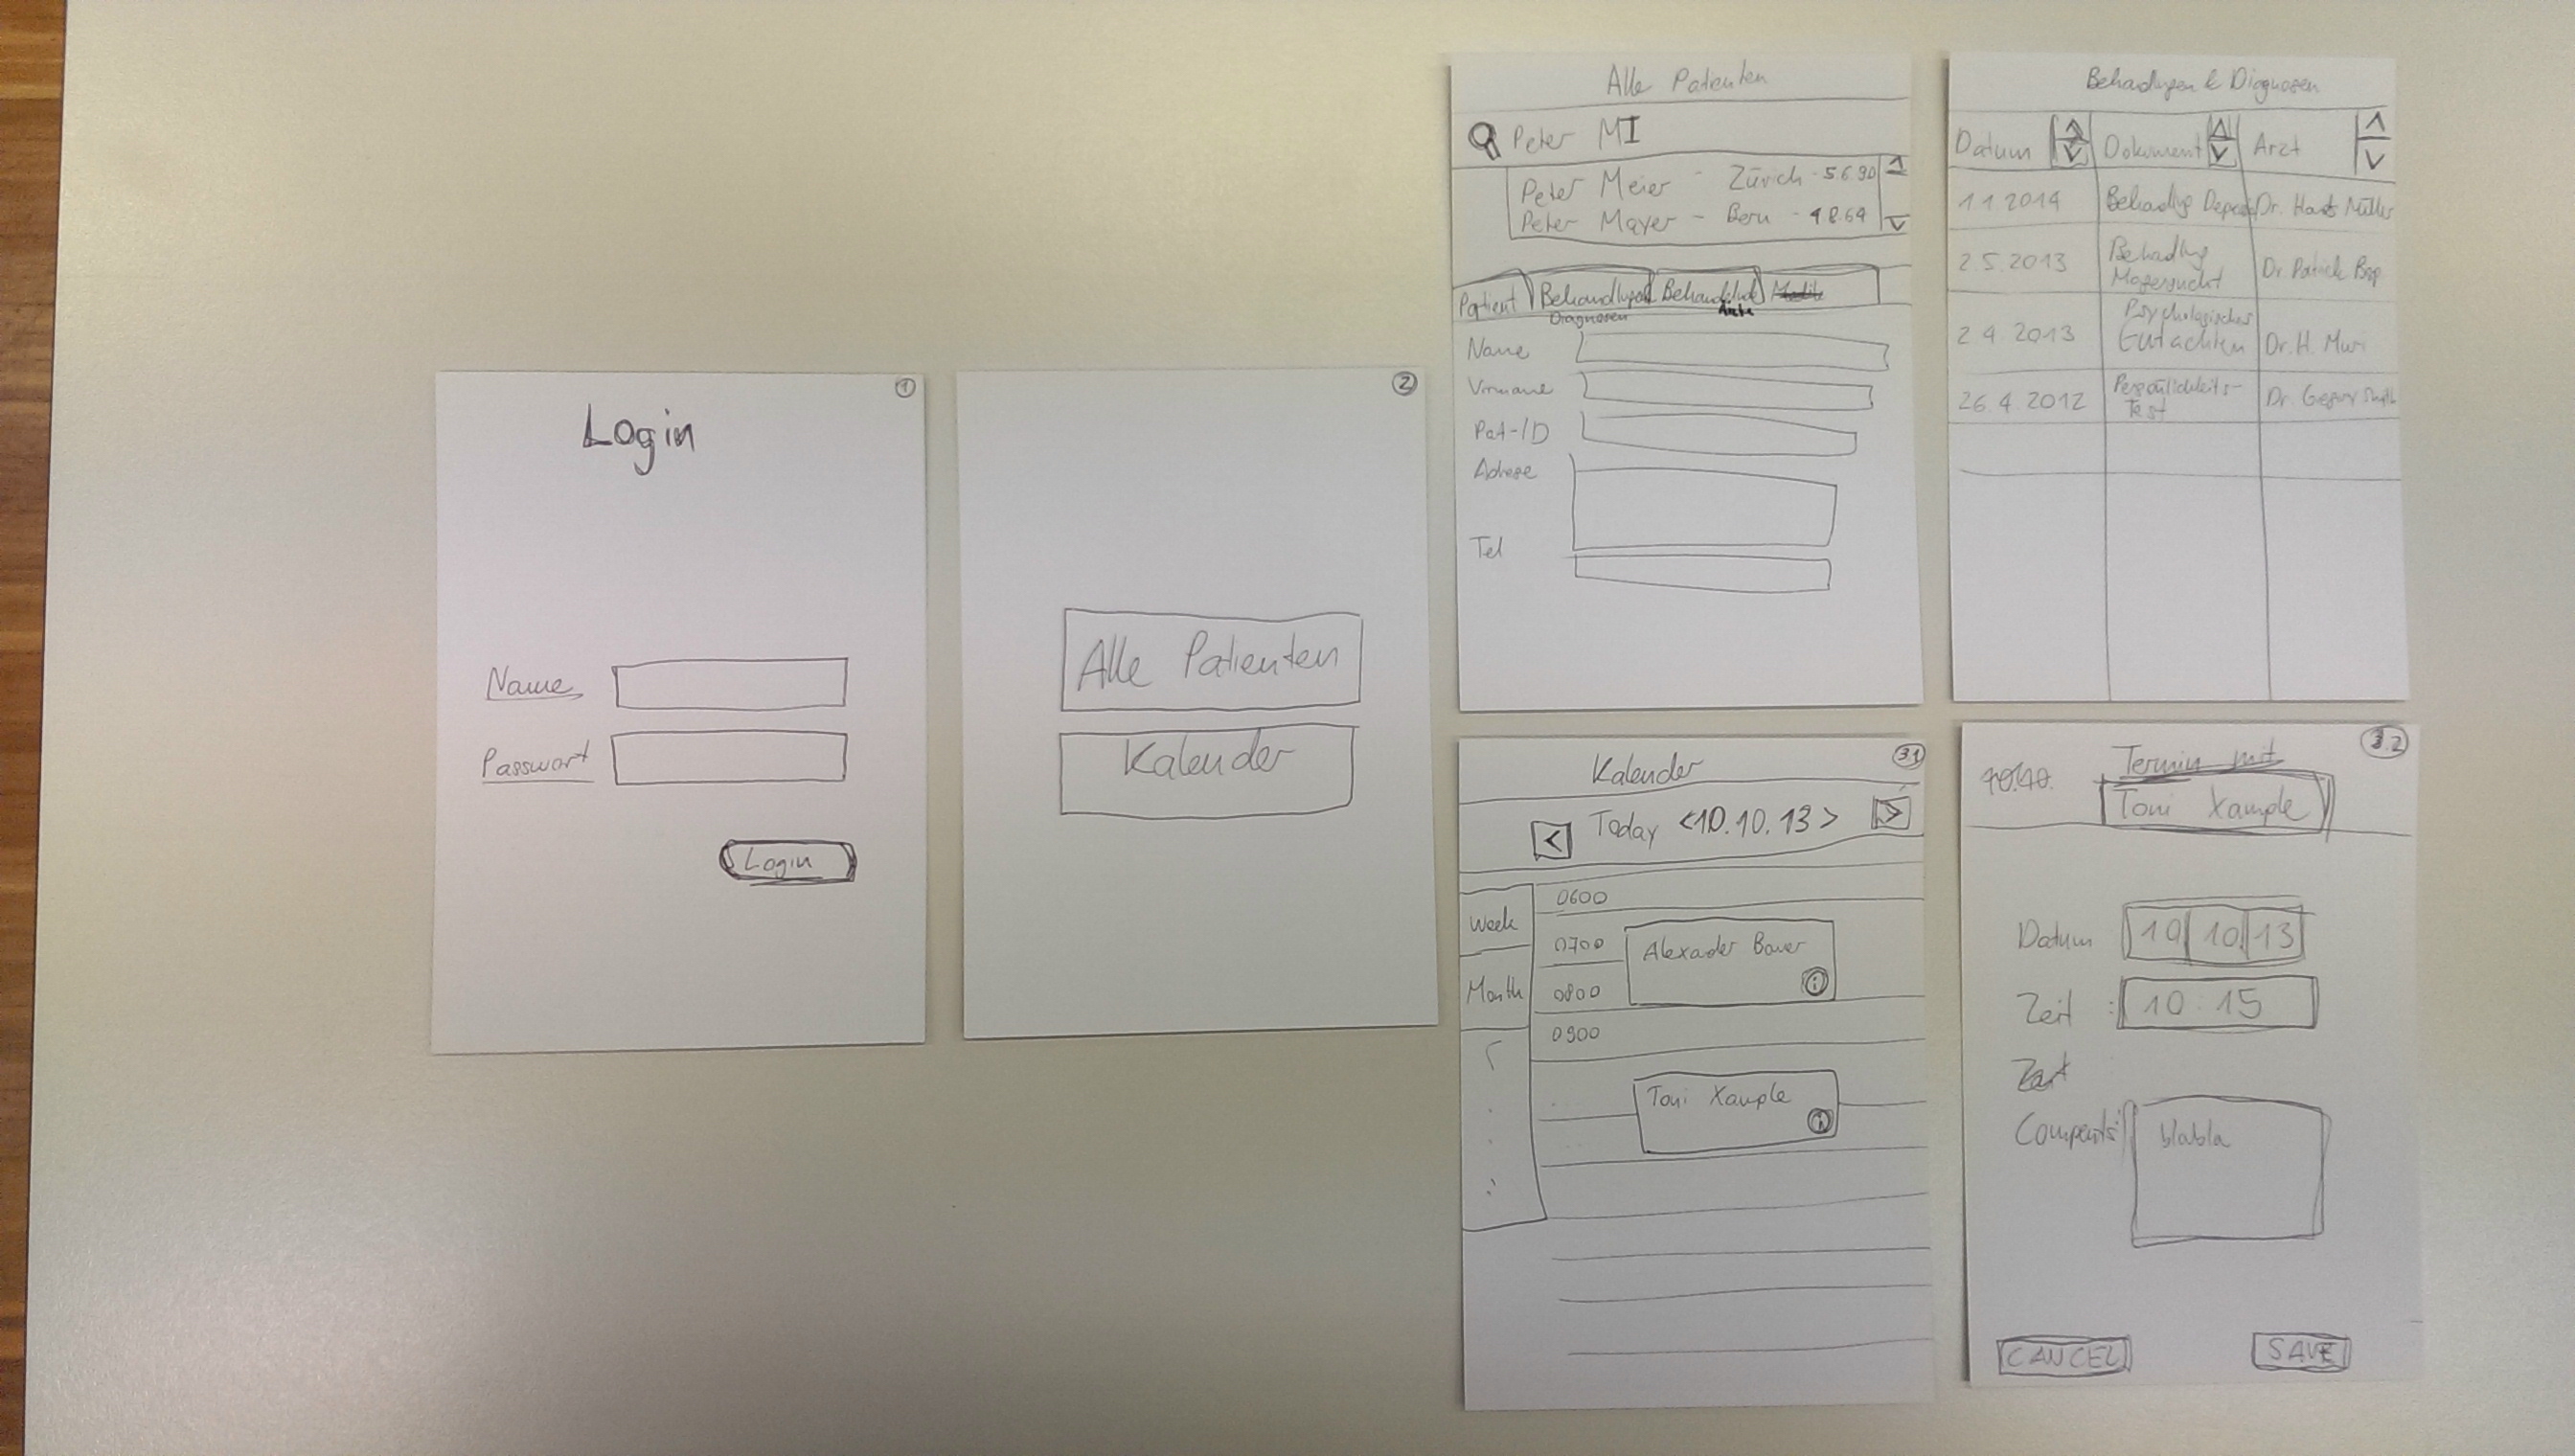 1
Login
Name
Passwort
Login
2
Alle Patienten
Kalender
Alle Patienten
Peter MI
Peter Meier - Zürich - 5.6.90
Peter Mayer - Bern - 4.8.64
Patient Behandlungen
Diagnosen Ärzte
Name
Vorname
Pat-ID
Adresse
Tel
Behandlungen & Diagnosen
Datum Dokument Arzt
1 1 2014 Dr. Müller
2.5.2013 Magersucht Dr. Patrick
2 4. 2013 Psychologisches Gutachten Dr. H.
26. 4. 2012 Persönlichkeits-
Test Dr.
Kalender 3.1
< Today <10. 10. 13> >
Week
Month
0600
0700
0800
0900
Alexander
i
Toni Xample
i
3.2
Termin mit
Toni Xample
Datum 10 10. 13
Zeit : 10 : 15
blabla
CANCEL SAVE